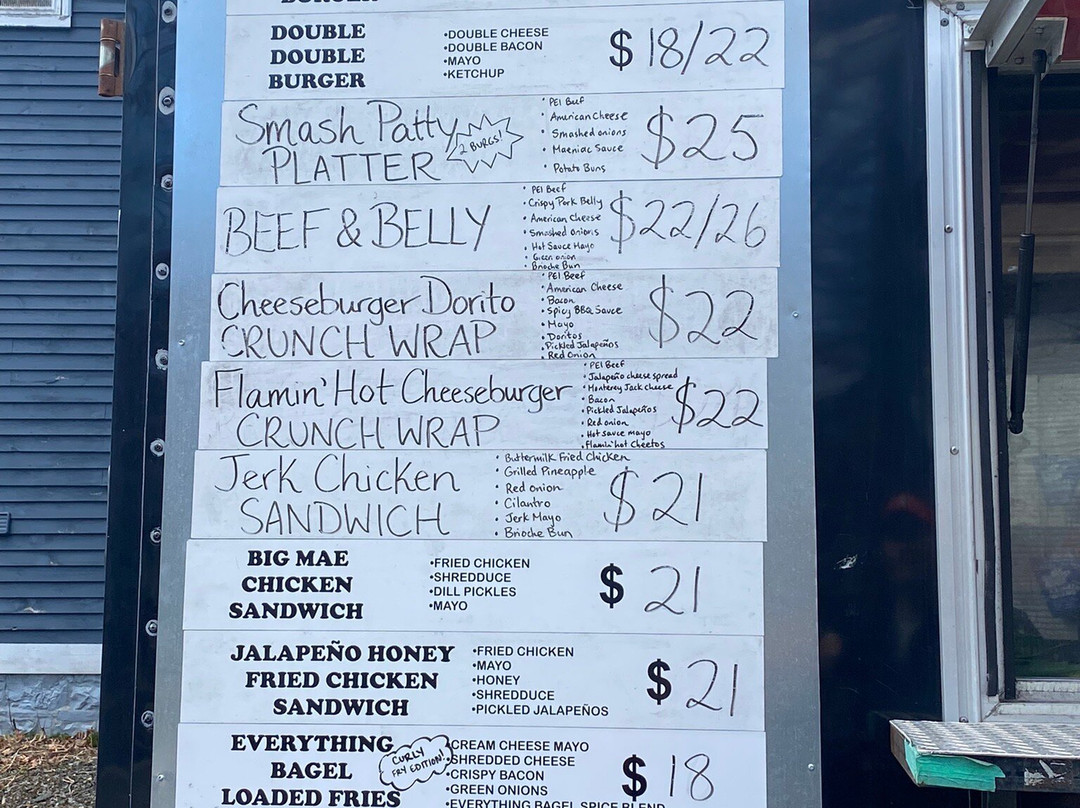 BURGER
DOUBLE
DOUBLE
BURGER
•DOUBLE CHEESE
•DOUBLE BACON
•MAYO
•KETCHUP
$ 18/22
Smash Patty
PLATTER
2 BURGS!
• PEI Beef
• American Cheese
• Smashed onions
• Maeniac Sauce
• Potato Buns
$25
BEEF & BELLY
• PEI Beef
• Crispy Pork Belly
• American Cheese
• Smashed Onions
• Hot Sauce Mayo
• Green onion
• Brioche Bun
$22/26
Cheeseburger Dorito
CRUNCH WRAP
• PEI Beef
• American Cheese
• Bacon
• Spicy BBQ Sauce
• Mayo
• Doritos
• Pickled Jalapeños
• Red Onion
$22
Flamin' Hot Cheeseburger
CRUNCH WRAP
• PEI Beef
• Jalapeño cheese spread
• Monterey Jack cheese
• Bacon
• Pickled Jalapeños
• Red onion
• Hot sauce mayo
• Flamin' hot Cheetos
$22
Jerk Chicken
SANDWICH
• Buttermilk Fried Chicken
• Grilled Pineapple
• Red onion
• Cilantro
• Jerk Mayo
• Brioche Bun
$21
BIG MAE
CHICKEN
SANDWICH
•FRIED CHICKEN
•SHREDDUCE
•DILL PICKLES
•MAYO
$ 21
JALAPEÑO HONEY
FRIED CHICKEN
SANDWICH
•FRIED CHICKEN
•MAYO
•HONEY
•SHREDDUCE
•PICKLED JALAPEÑOS
$ 21
EVERYTHING
BAGEL
LOADED FRIES
CURLY
FRY EDITION!
CREAM CHEESE MAYO
SHREDDED CHEESE
•CRISPY BACON
•GREEN ONIONS
•EVERYTHING BAGEL SPICE BLEND
$ 18